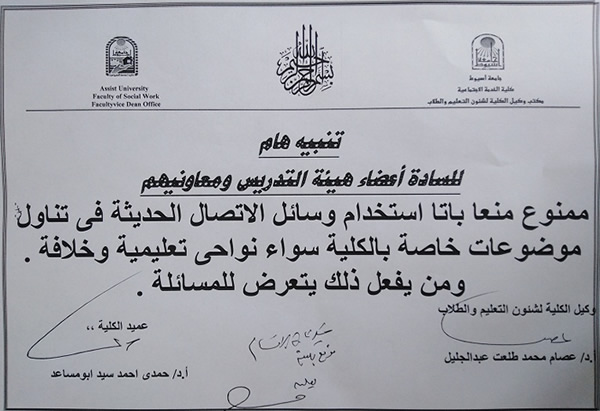 جامعة أسيوط
كلية الخدمة الاجتماعية
مكتب وكيل الكلية لشئون التعليم والطلاب
بسم الله الرحمن الرحيم
Assist University
Faculty of Social Work
Facultyvice Dean Office
تنبيه هام
للسادة أعضاء هيئة التدريس ومعاونيهم
ممنوع منعا باتا استخدام وسائل الاتصال الحديثة فى تناول
موضوعات خاصة بالكلية سواء نواحى تعليمية وخلافة .
ومن يفعل ذلك يتعرض للمسائلة .
وكيل الكلية لشئون التعليم والطلاب
أ.د/ عصام محمد طلعت عبدالجليل
عميد الكلية ،،
أ.د/ حمدى احمد سيد ابومساعد